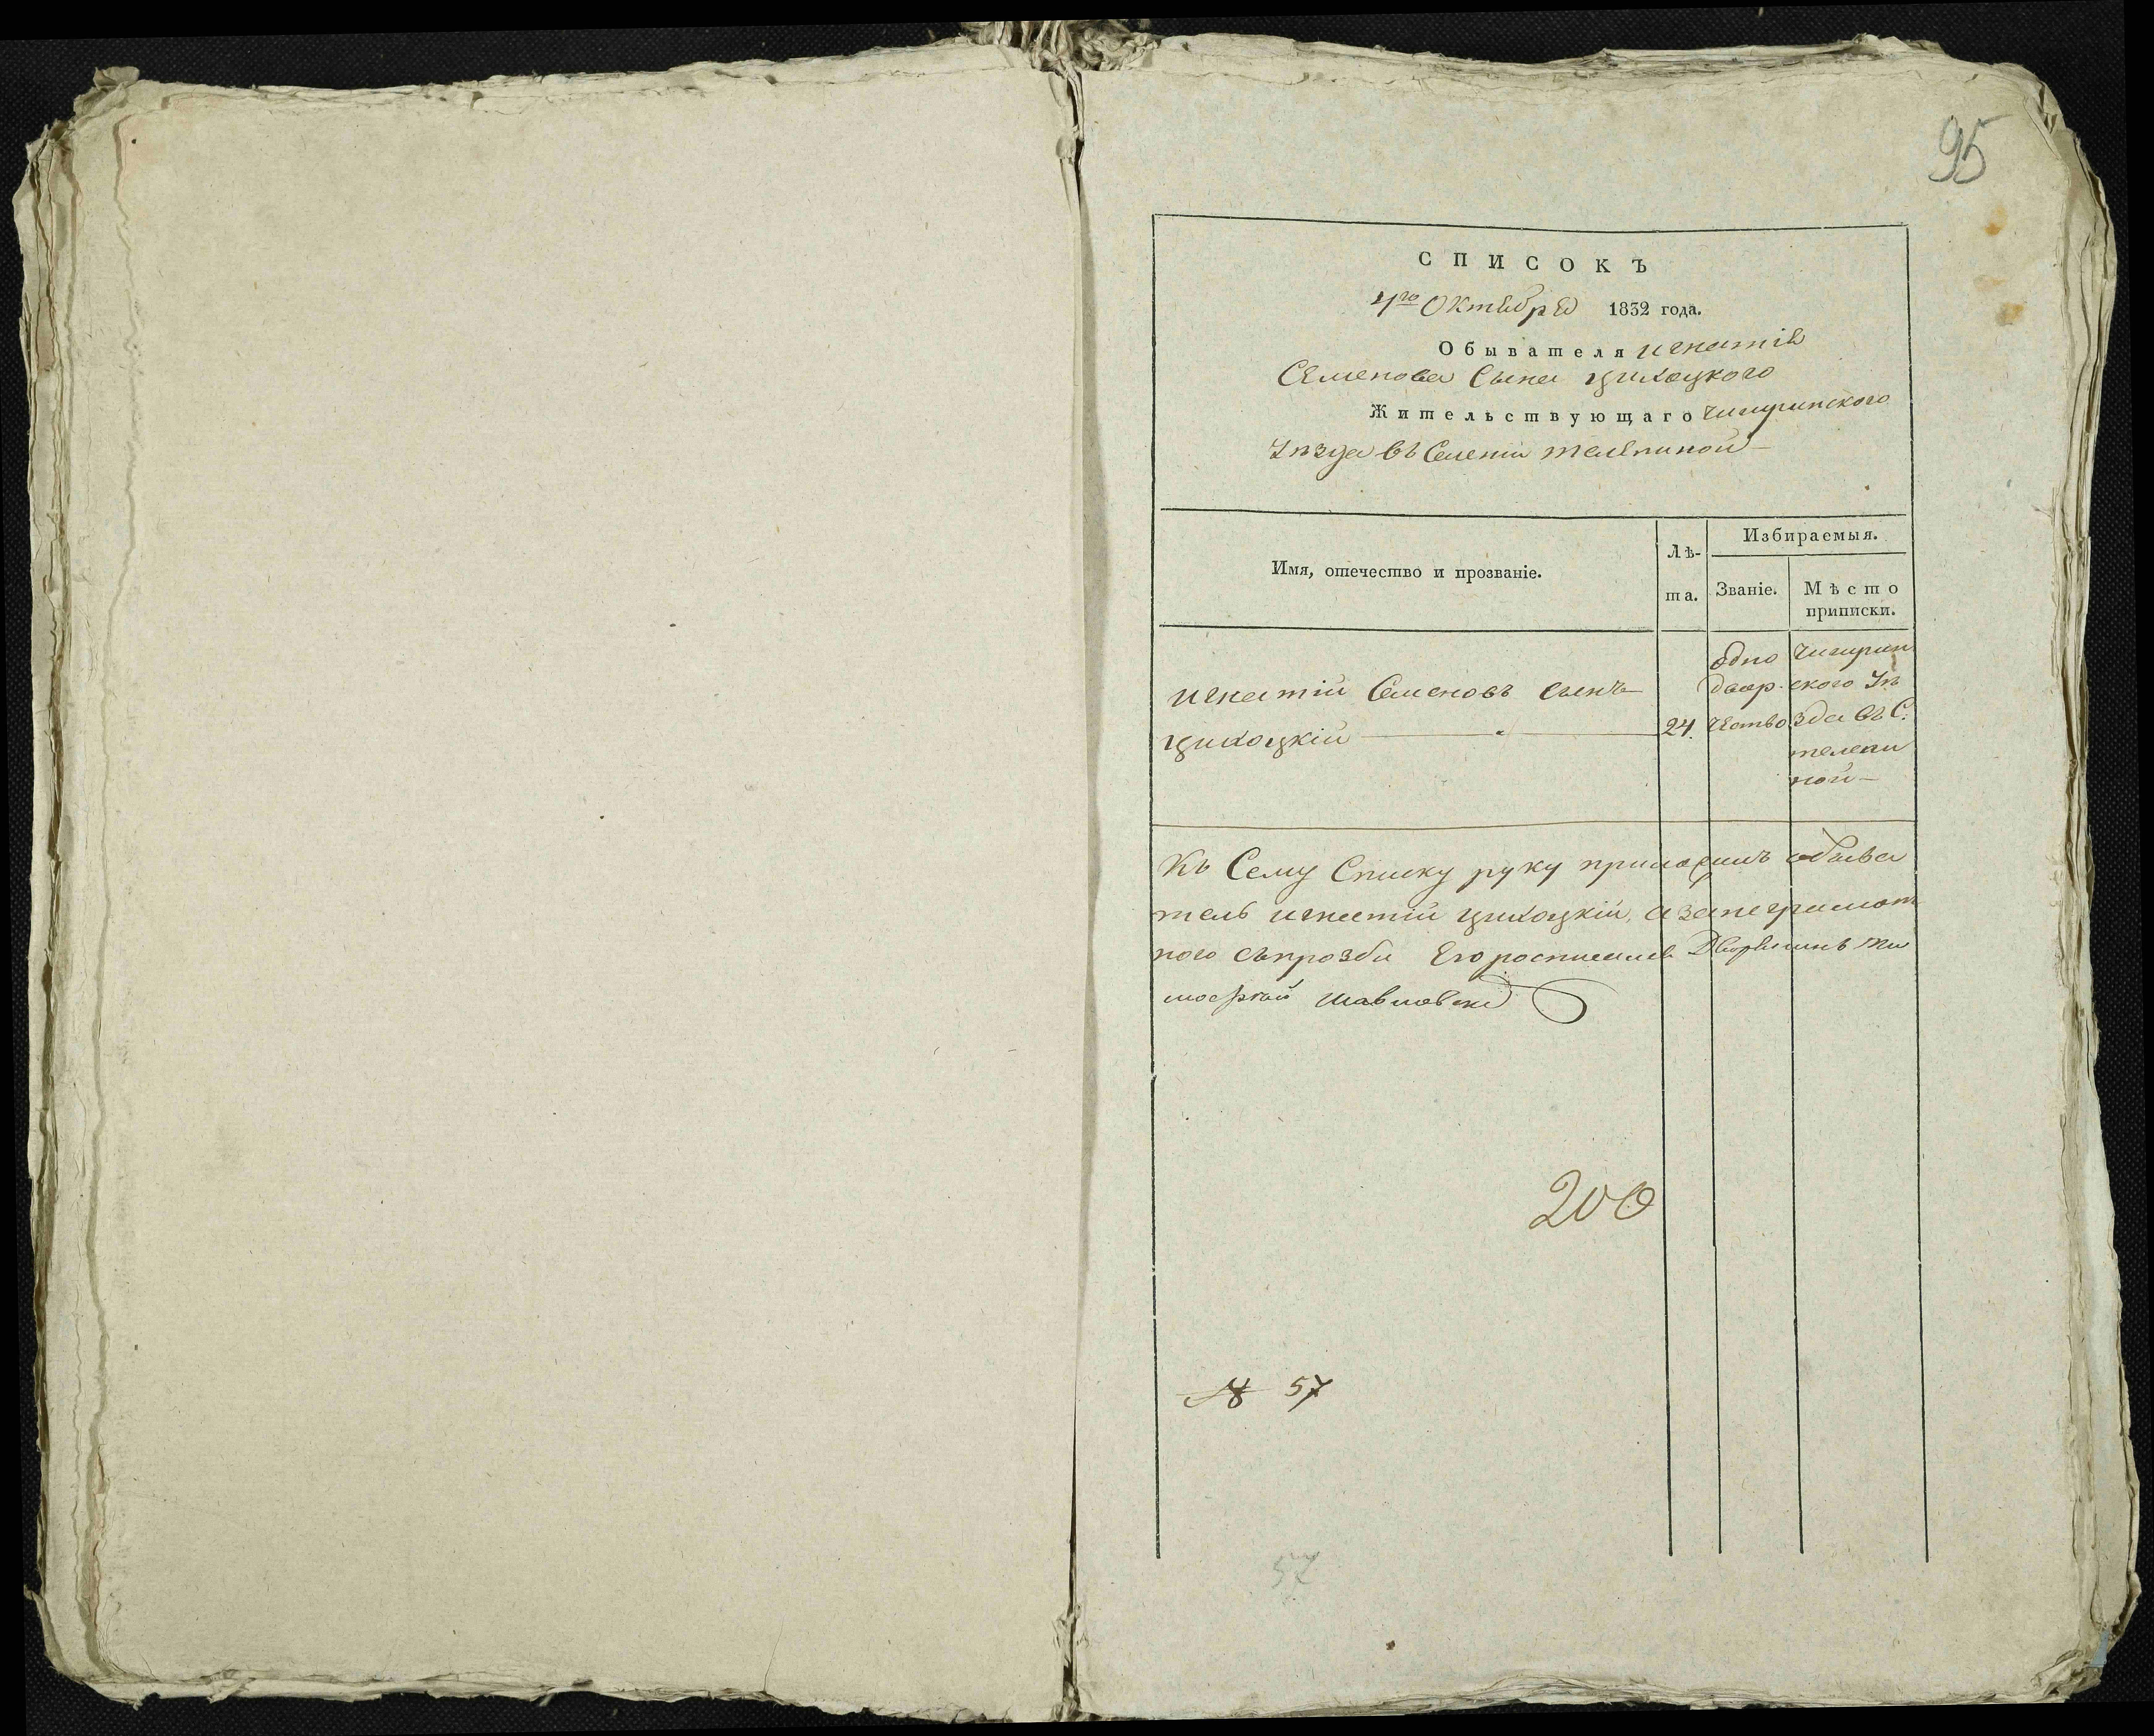 95
СПИСОКЪ
4го Октября 1832 года.
Обывателя игнатія
Семенова Сына цихоцкого
Жительствующаго чигиринского
Уѣзда въ Селеніи телепиной
Имя, отечество и прозваніе.
Лѣ-
та.
Избираемыя.
Званіе.
Мѣсто
приписки.
игнатій Семеновъ сынъ
цихоцкій
24.
одно
двор-
чество
чигирин
ского Уѣ
зда въ С.
телепи
ной
Къ Сему Списку руку приложилъ обыва
тель игнатій цихоцкій, а за неграмот
ного съ прозби Его росписался Дворянинъ Ти
200
№ 57
57